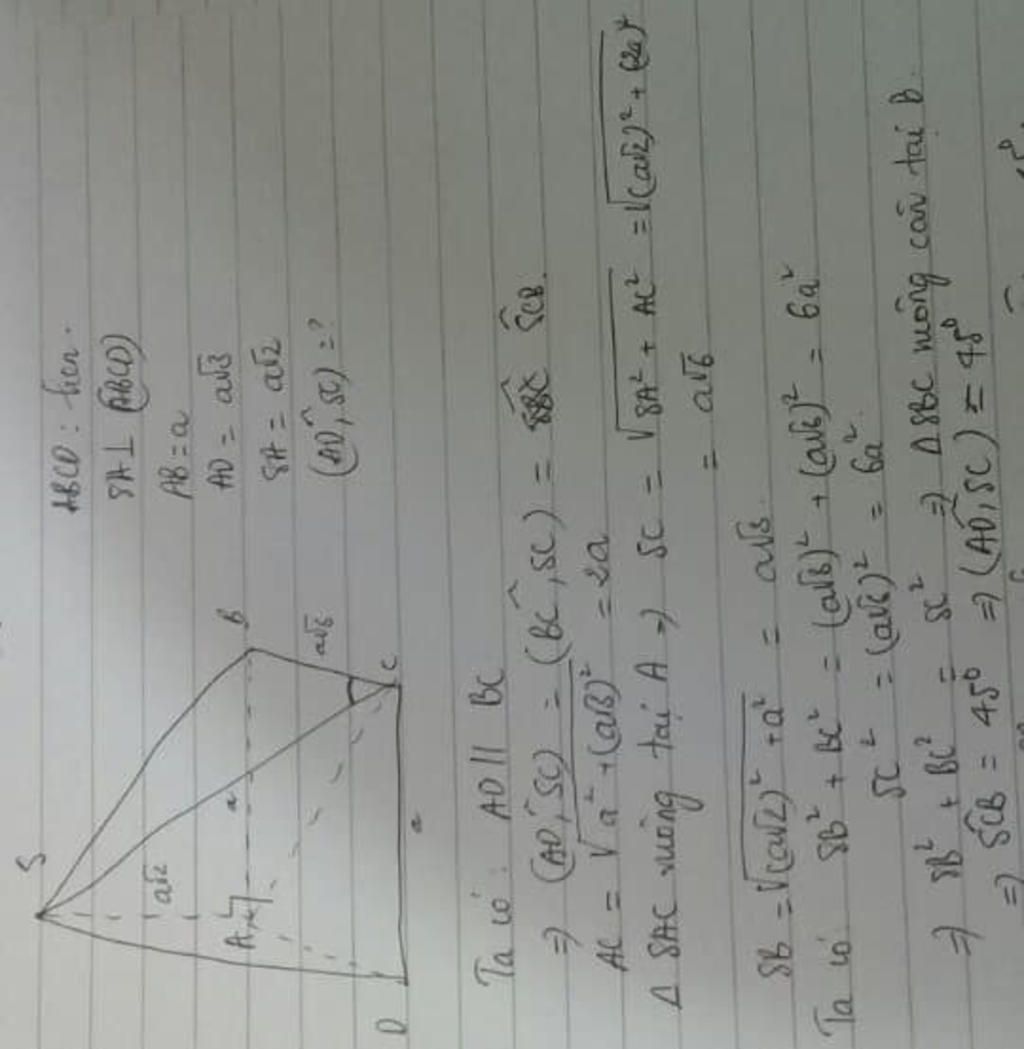 ABCD : hcn.
SA ⊥ (ABCD)
AB = a
AD = a√3
SA = a√2
(AD, SC) = ?
S
a√2
A
a
B
a√3
D
a
C
Ta có : AD // BC
⇒ (AD, SC) = (BC, SC) = SCB.
AC = √a² + (a√3)² = 2a
Δ SAC vuông tại A ⇒ SC = √SA² + AC² = √(a√2)² + (2a)²
= a√6
SB = √(a√2)² + a² = a√3.
Ta có SB² + BC² = (a√3)² + (a√3)² = 6a²
SC² = (a√6)² = 6a².
⇒ SB² + BC² = SC² ⇒ Δ SBC vuông cân tại B.
⇒ SCB = 45⁰ ⇒ (AD, SC) = 45⁰